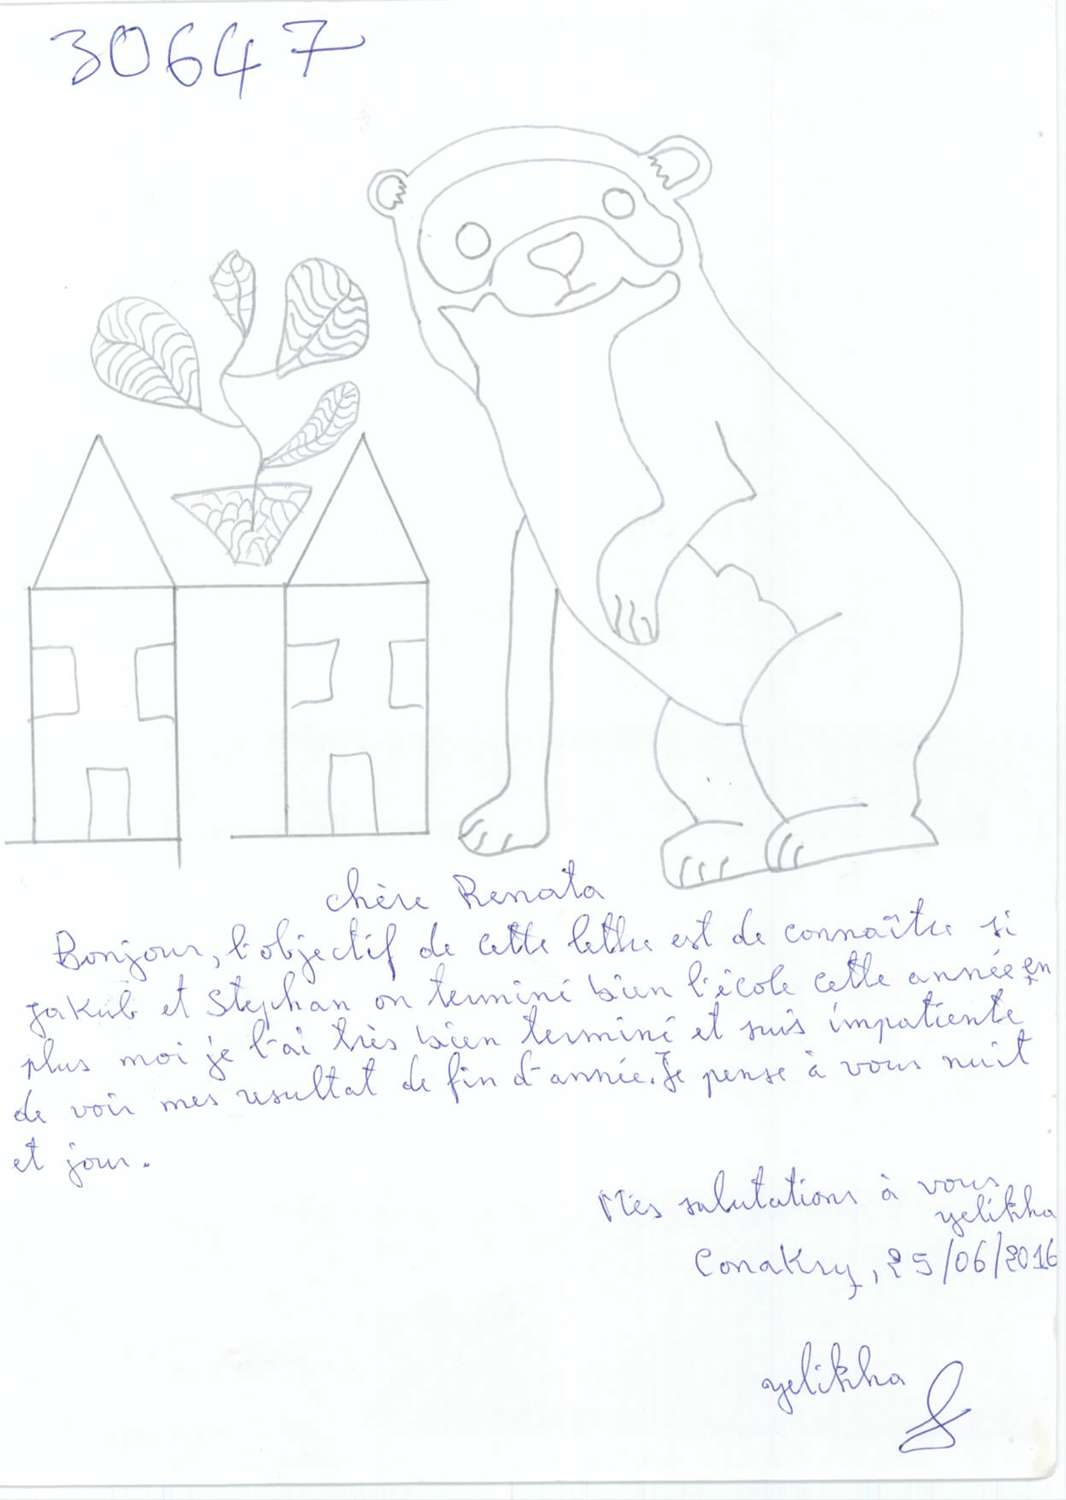 30647
chère Renata
Bonjour, l'objectif de cette lettre est de connaître si
Jakub et Stephan on terminé bien l'école cette année en
plus moi je l'ai très bien terminé et suis impatiente
de voir mes resultat de fin d'année. Je pense à vous nuit
et jour.
Mes salutations à vous
yelikha
Conakry, 25/06/2016
yelikha